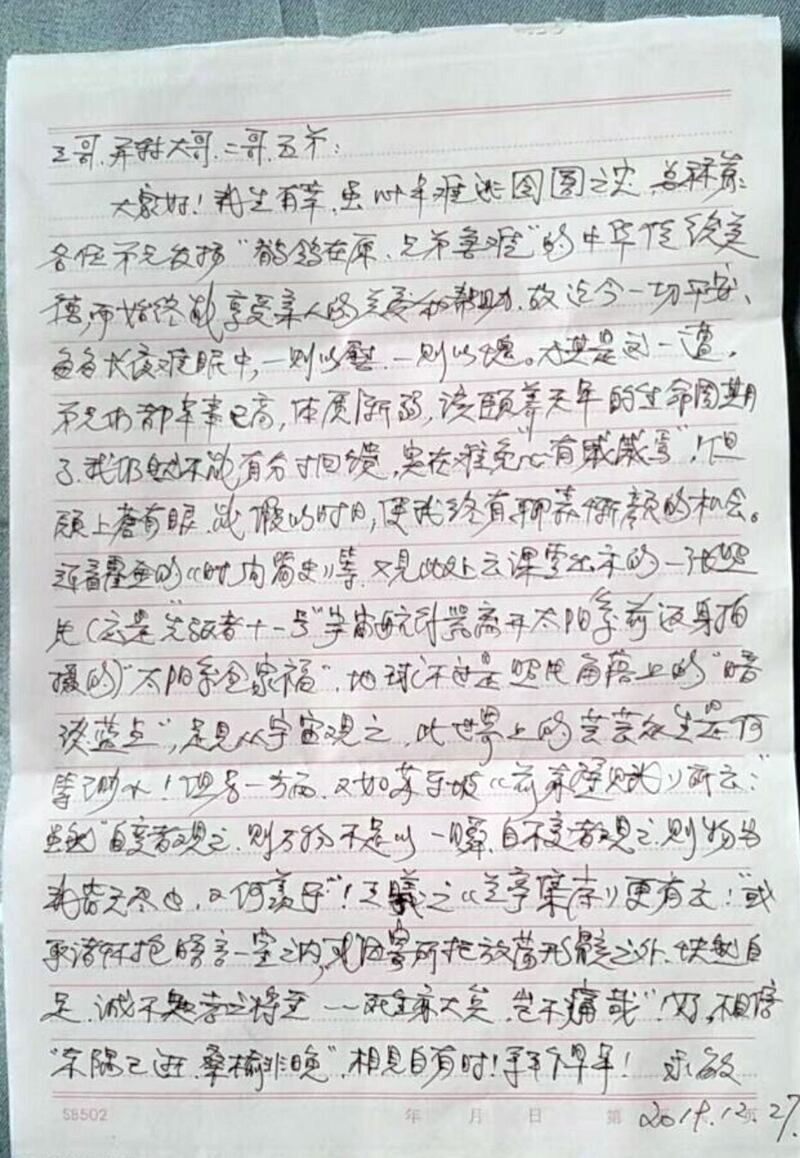 三哥、并转大哥、二哥、五弟：
大家好！我生有幸，虽此年难逃囹圄之灾，总
各位弟兄发扬“鹡鸰在原，兄弟急难”的中华传统美
德，而始终能享受亲人的关爱和帮助，故迄今一切平安、
每每长夜难眠中，一则以慰，一则以愧。尤其是这一遭，
弟兄们都年事已高，体质渐弱，该颐养天年的生命周期
了，我仍然不能有分寸回馈，实在难免“心有戚戚焉”！但
愿上苍有眼，我假以时日，使我终有聊慕慚颜的机会。
近看霍金的《时间简史》等，又见此处云课堂出示的一张照
片（应是“先驱者十一号”宇宙航行器离开太阳系前返身拍
摄的）“太阳系全家福”，地球不过是照片角落上的“暗
淡蓝点”，足见从宇宙观之，此世界上的芸芸众生是何
等渺小！但另一方面，又如苏东坡《前赤壁赋》所云：
虽然“自变者观之，则万物不足以一瞬，自不变者观之，则物与
我皆无尽也，又何羡乎”！王羲之《兰亭集序》更有云：“或
取诸怀抱晤言一室之内，或因寄所托放荡形骸之外、快然自
足，诚不知老之将至……死生亦大矣，岂不痛哉”！好，相信
“东隅已逝，桑榆非晚”，相见自有时！平平
2019.12.27.
SB502
年 月 日 第 页